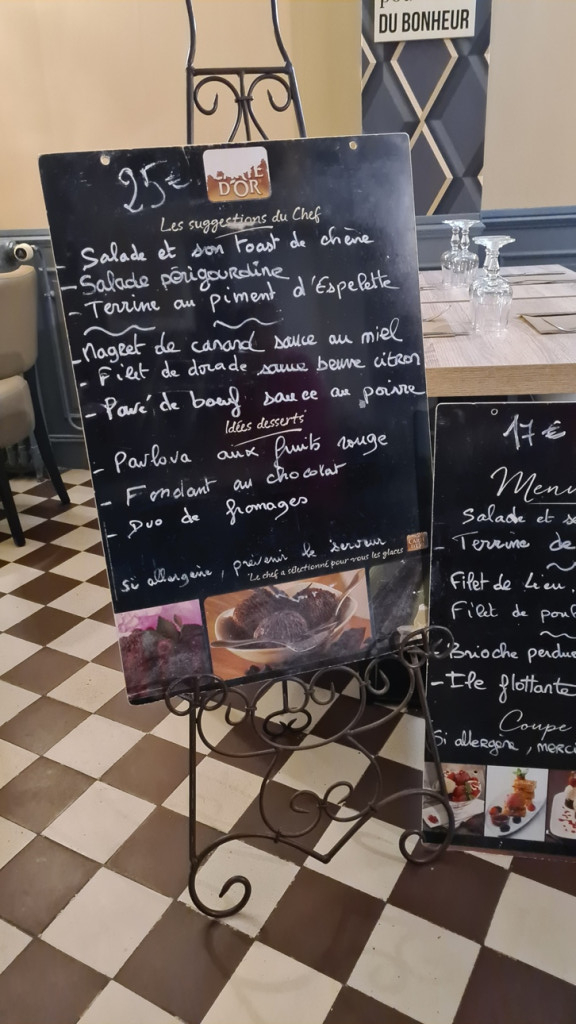 DU BONHEUR
25€
CARTE
D'OR
Les suggestions du Chef
- Salade et son toast de chèvre
- Salade périgourdine
- Terrine au piment d'Espelette
- Magret de canard sauce au miel
- Filet de dorade sauce beurre citron
- Pavé de bœuf sauce au poivre
Idées desserts
- Pavlova aux fruits rouge
- Fondant au chocolat
- Duo de fromages
si allergène, prévenir le serveur
Le chef a sélectionné pour vous les glaces
17€
Menu
Salade et
- Terrine de
Filet de lieu
Filet de
- Brioche perdue
- Ile flottante
Coupe
Si allergène, merci